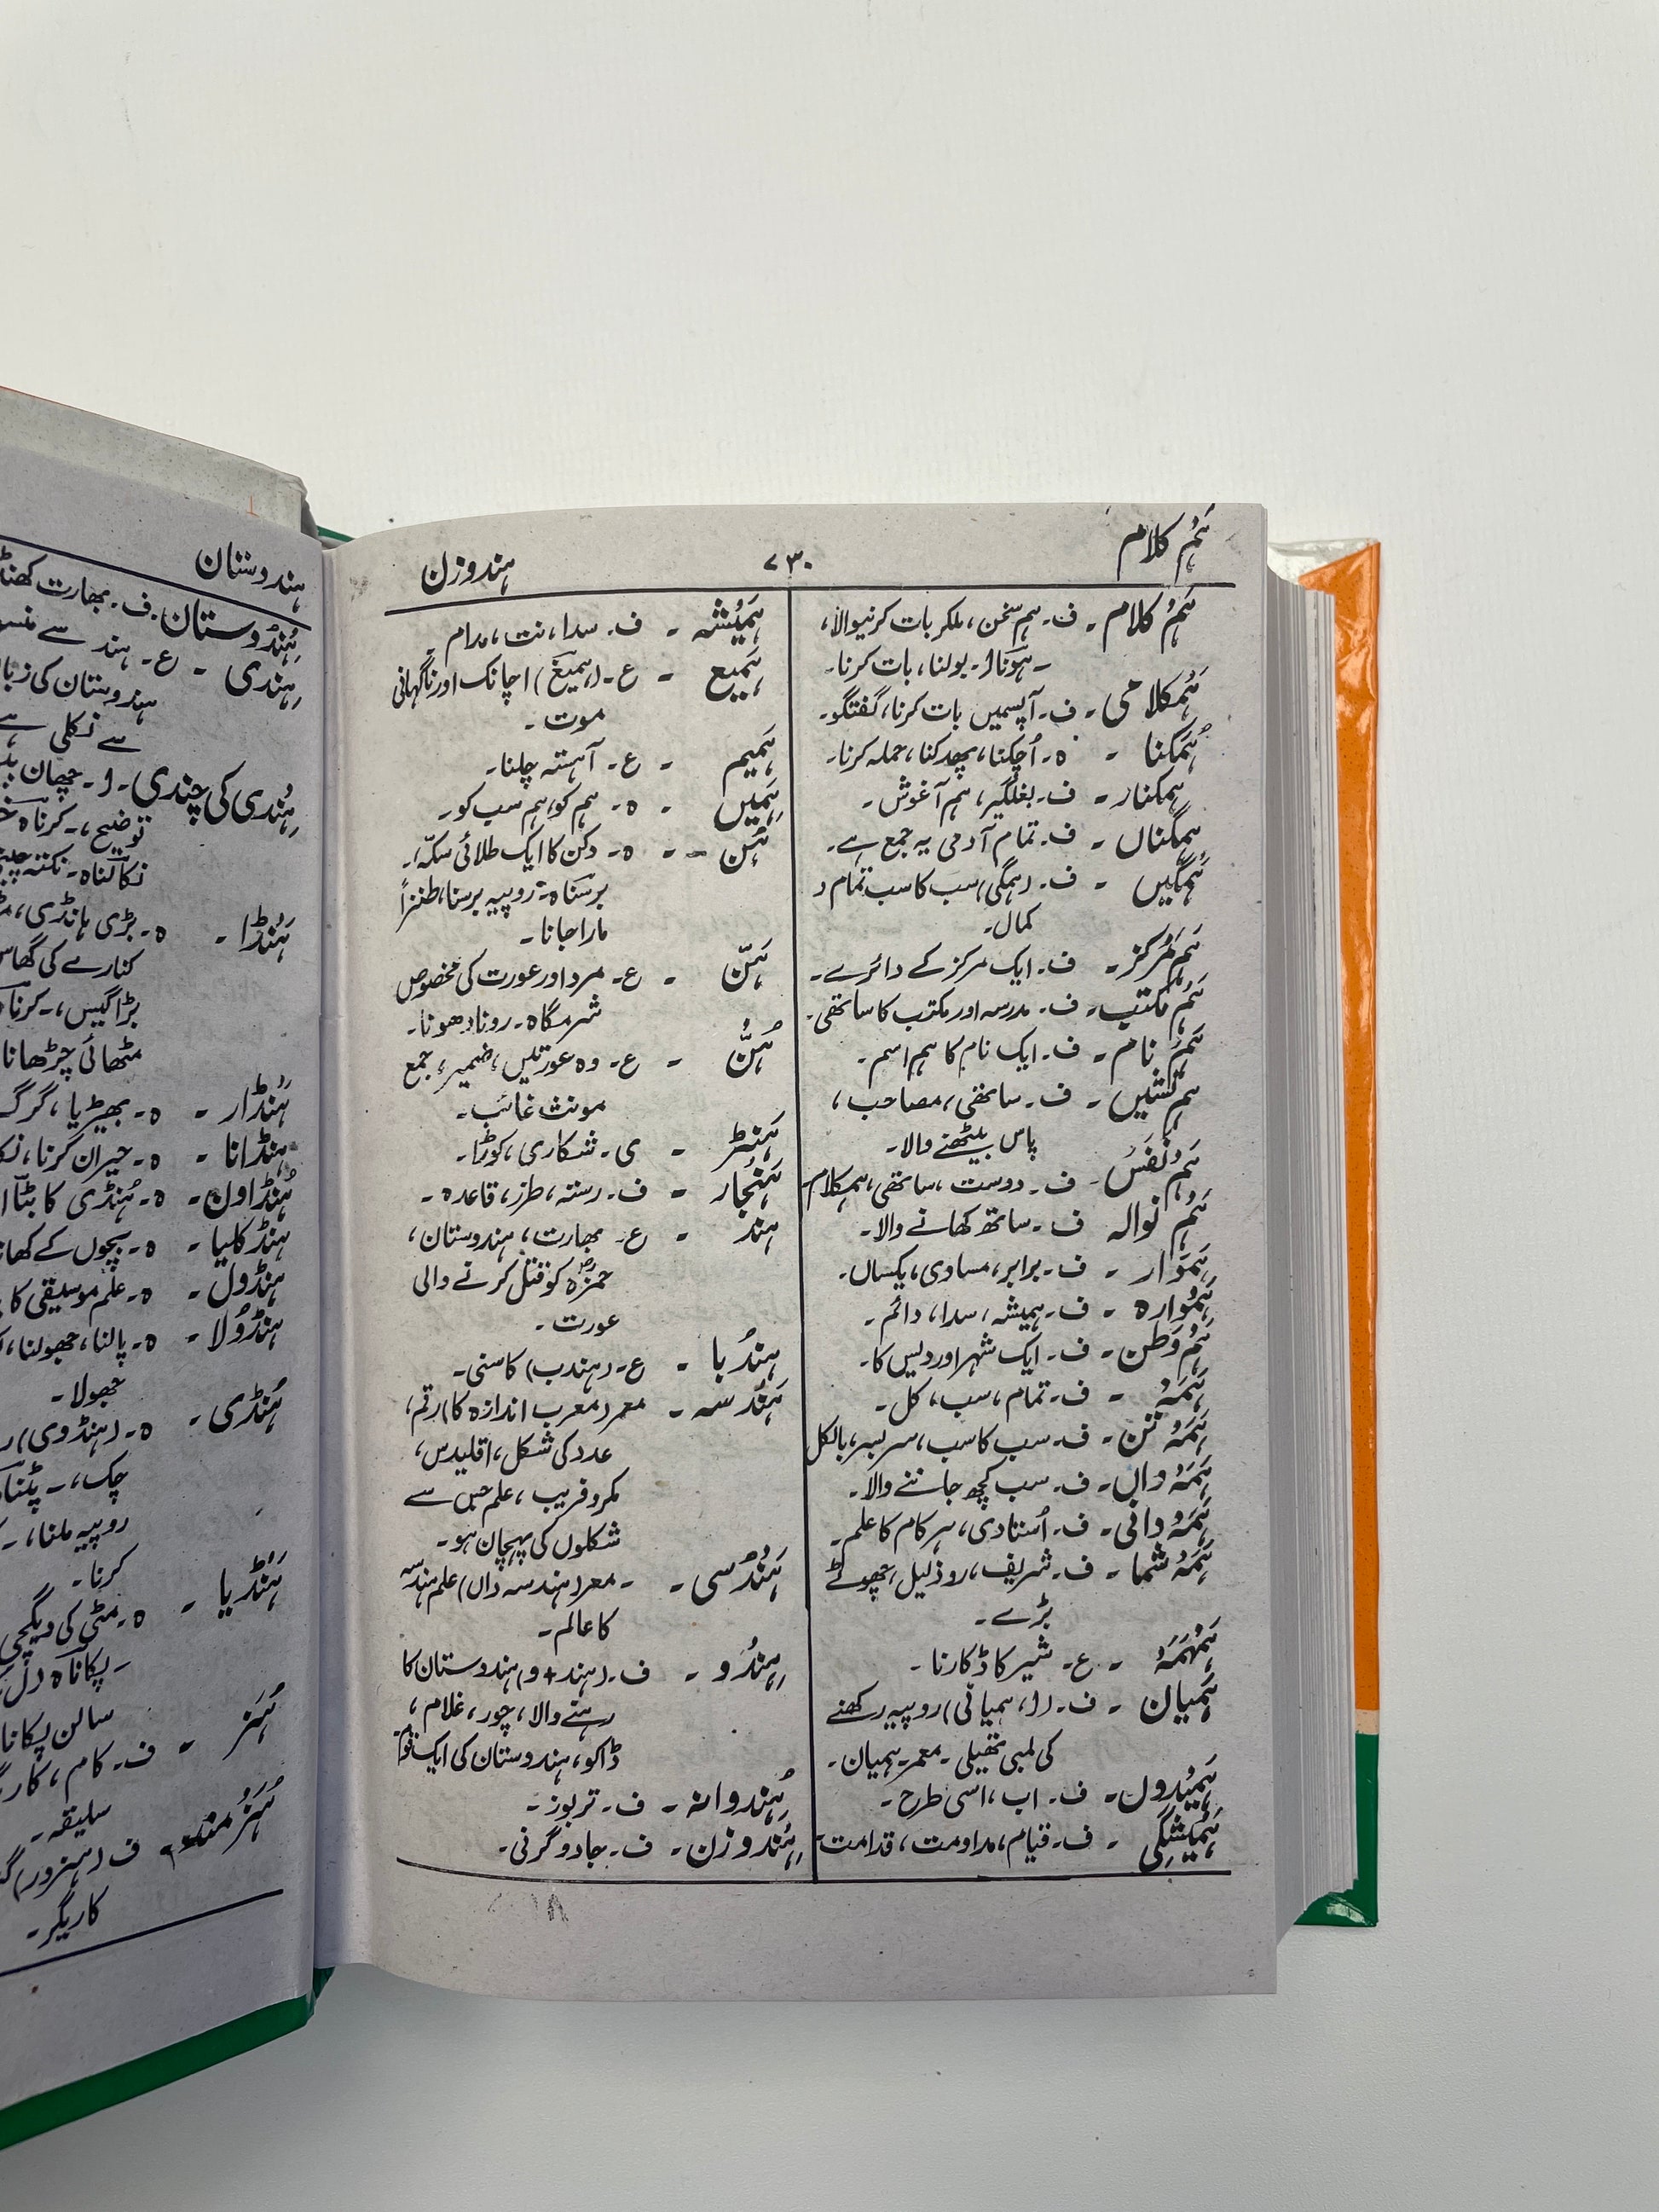 ہَم کلام
۷۳۰
ہندوزن
ہَم کلام - ف۔ ہم سخن، ملکر بات کرنیوالا،
۔ ہونا۔ ا۔ بولنا، بات کرنا۔
ہَمکلامی - ف۔ آپسمیں بات کرنا، گفتگو۔
ہُمَکنا - ہ۔ اُچکنا، پھدکنا، حملہ کرنا۔
ہمکنار - ف۔ بغلگیر، ہم آغوش۔
ہمگناں - ف۔ تمام آدمی یہ جمع ہے۔
ہَمگیں - ف۔ (ہمگی) سب کا سب تمام و
کمال۔
ہَم مَرکز - ف۔ ایک مرکز کے دائرے۔
ہَم مکتب - ف۔ مدرسہ اور مکتب کا ساتھی۔
ہَم نام - ف۔ ایک نام کا ہم اسم۔
ہم نشیں - ف۔ ساتھی، مصاحب،
پاس بیٹھنے والا۔
ہَم نَفَس - ف۔ دوست، ساتھی، ہمکلام
ہَم نوالہ ف۔ ساتھ کھانے والا۔
ہَموار - ف۔ برابر، مساوی، یکساں۔
ہَموارہ - ف۔ ہمیشہ، سدا، دائم۔
ہَم وَطن - ف۔ ایک شہر اور دیس کا۔
ہَمَہ - ف۔ تمام، سب، کل۔
ہَمَہ تن - ف۔ سب کا سب، سر بسر، بالکل
ہَمَہ داں - ف۔ سب کچھ جاننے والا۔
ہَمَہ دانی - ف۔ اُستادی، ہر کام کا علم۔
ہَمَہ شما - ف۔ شریف، روذیل، چھوٹے
بڑے۔
ہَمْہَمَہ - ع۔ شیر کا ڈکارنا۔
ہَمیان - ف۔ (ا، ہمیانی) روپیہ رکھنے
کی لمبی تھیلی۔ معر۔ ہمیان۔
ہَمیدول - ف۔ اب، اسی طرح۔
ہَمیشگی - ف۔ قیام، مداومت، قدامت۔
ہَمیشہ - ف۔ سدا، نت، مدام۔
ہَمیع - ع۔ (ہمیغ) اچانک اور ناگہانی
موت۔
ہَمیم - ع۔ آہستہ چلنا۔
ہَمِیں - ہ۔ ہم کو، ہم سب کو۔
ہُن - ہ۔ دکن کا ایک طلائی سکہ،۔
برسنا ہ۔ روپیہ برسنا، طنزاً
مارا جانا۔
ہَنّ - ع۔ مرد اور عورت کی مخصوص
شرمگاہ۔ رونا دھونا۔
ہُنَّ - ع۔ وہ عورتیں، ضمیر، جمع
مونث غائب۔
ہَنٹر - ی۔ شکاری، کوڑا۔
ہَنْجار - ف۔ رستہ، طرز، قاعدہ۔
ہند - ع۔ بھارت، ہندوستان،
حمزہؓ کو قتل کرنے والی
عورت۔
ہندُبا - ع۔ (ہندب) کاسنی۔
ہَنْدسہ - معر (معرب اندازہ کا) رقم،
عدد کی شکل، اقلیدس،
مکر و فریب، علم جس سے
شکلوں کی پہچان ہو۔
ہَنْدسی - معر (ہندسہ داں) علم ہندسہ
کا عالم۔
ہِندُو - ف۔ (ہند + و) ہندوستان کا
رہنے والا، چور، غلام،
ڈاکو، ہندوستان کی ایک قوم
ہِندوانہ - ف۔ تربوز۔
ہِندوزن - ف۔ جادوگرنی۔
ہندوستان
ہِنْدوستان۔ ف۔ بھارت کھنڈ
ہِندی - ع۔ ہند سے
ہندوستان کی
سے نکلی ہے
ہِندی کی چندی - ا۔ چھان
توضیح، ۔ کرنا ہ
نکالنا ہ۔ نکتہ
ہَنْڈا - ہ۔ بڑی ہانڈی،
کنارے کی گھاس
بڑا گیس، ۔ کرنا
مٹھائی چڑھانا
ہُنڈار - ہ۔ بھیڑیا، گرگ
ہنڈانا - ہ۔ حیران کرنا،
ہُنڈاون - ہ۔ ہُنڈی کا بٹا
ہنڈ کلیا - ہ۔ بچوں کے
ہنڈول - ہ۔ علم موسیقی کا
ہنڈولا - ہ۔ پالنا، جھولنا،
جھولا۔
ہُنڈی - ہ۔ (ہنڈوی)
چک، ۔ پٹنا
روپیہ ملنا، ۔
کرنا۔
ہَنْڈیا - ہ۔ مٹی کی دیگچی
۔ پکانا ہ دل
سالن پکانا
ہُنَر - ف۔ کام،
سلیقہ۔
ہُنَر مند - ف (ہنرور)
کاریگر۔